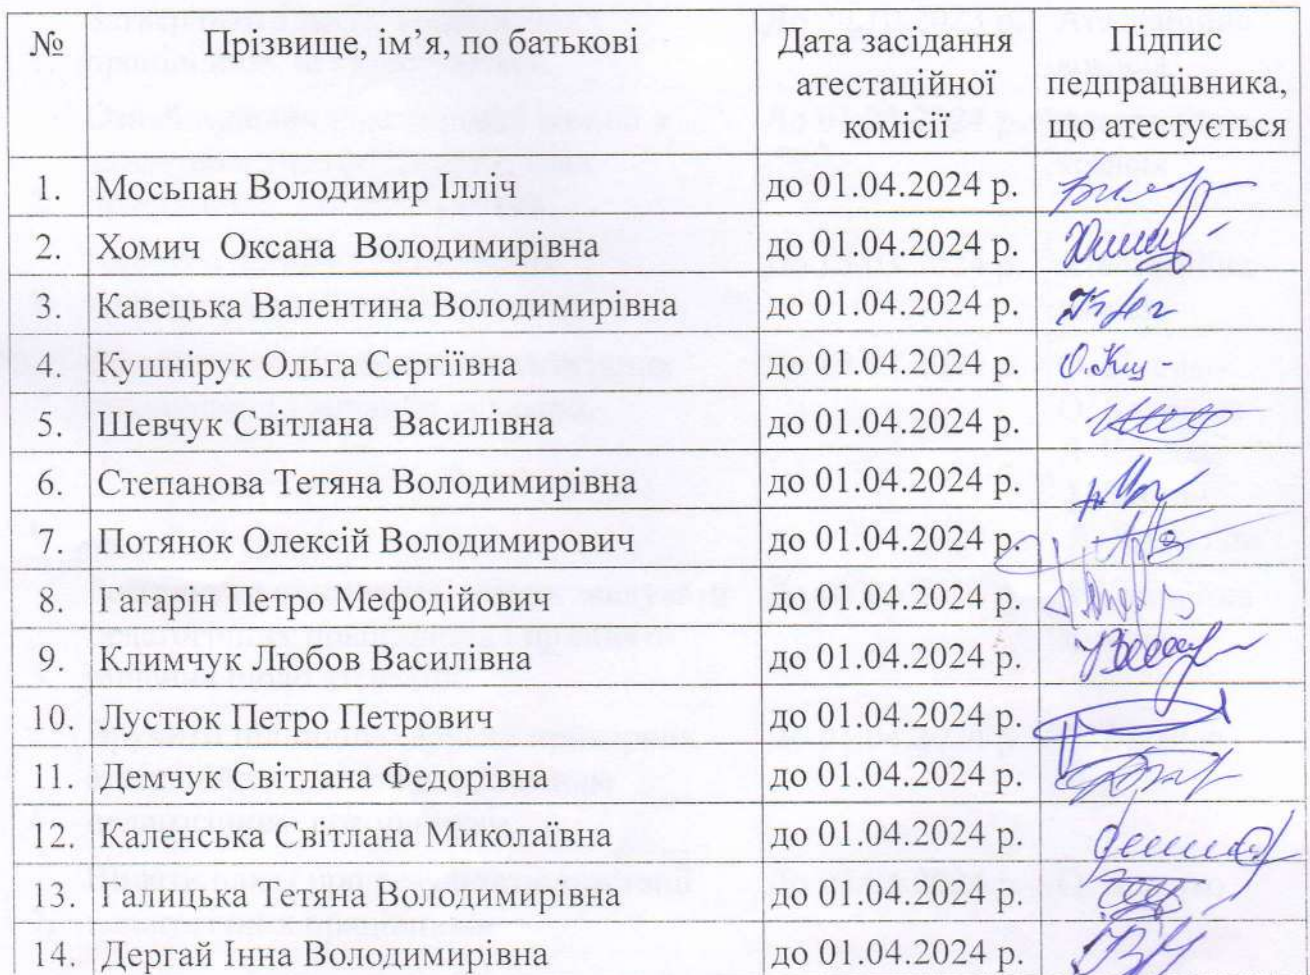 № Прізвище, ім’я, по батькові Дата засідання атестаційної комісії Підпис педпрацівника, що атестується
1. Мосьпан Володимир Ілліч до 01.04.2024 р.
2. Хомич Оксана Володимирівна до 01.04.2024 р.
3. Кавецька Валентина Володимирівна до 01.04.2024 р.
4. Кушнірук Ольга Сергіївна до 01.04.2024 р. О.Куш
5. Шевчук Світлана Василівна до 01.04.2024 р.
6. Степанова Тетяна Володимирівна до 01.04.2024 р.
7. Потянок Олексій Володимирович до 01.04.2024 р.
8. Гагарін Петро Мефодійович до 01.04.2024 р.
9. Климчук Любов Василівна до 01.04.2024 р.
10. Лустюк Петро Петрович до 01.04.2024 р.
11. Демчук Світлана Федорівна до 01.04.2024 р.
12. Каленська Світлана Миколаївна до 01.04.2024 р.
13. Галицька Тетяна Володимирівна до 01.04.2024 р.
14. Дергай Інна Володимирівна до 01.04.2024 р.